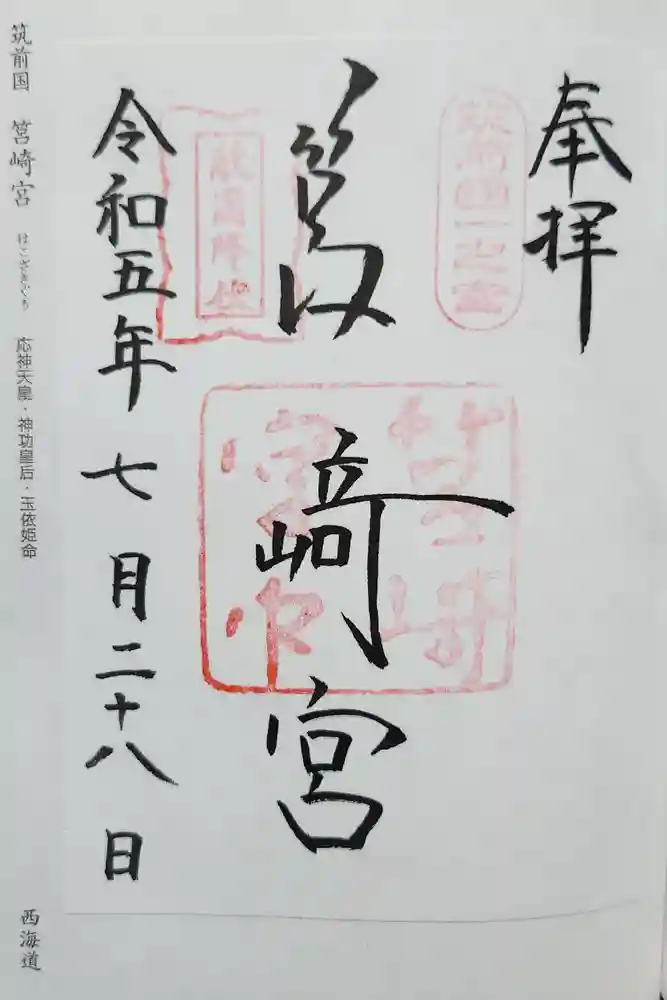 奉拝
筑前國一之宮
筥崎宮
敵国降伏
筥崎宮印
令和五年七月二十八日
筑前国 筥崎宮 はこざきぐう 応神天皇・神功皇后・玉依姫命
西海道